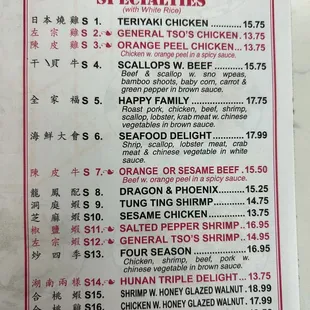 SPECIALTIES
(with White Rice)
日本燒雞 S 1. TERIYAKI CHICKEN 15.75
左宗雞 S 2. GENERAL TSO'S CHICKEN 13.75
陳皮雞 S 3. ORANGE PEEL CHICKEN 13.75
Chicken w. orange peel in a spicy sauce.
干貝牛 S 4. SCALLOPS W. BEEF 15.75
Beef & scallop w. sno wpeas,
bamboo shoots, baby corn, carrot &
green pepper in brown sauce.
全家福 S 5. HAPPY FAMILY 17.75
Roast pork, chicken, beef, shrimp,
scallop, lobster, krab meat w. chinese
vegetable in brown sauce.
海鮮大會 S 6. SEAFOOD DELIGHT 17.99
Shrip, scallop, lobster meat, crab
meat & chinese vegetable in white
sauce.
陳皮牛 S 7. ORANGE OR SESAME BEEF 15.50
Beef w. orange peel in a spicy sauce.
龍鳳配 S 8. DRAGON & PHOENIX 15.25
洞庭蝦 S 9. TUNG TING SHIRMP 14.75
芝麻雞 S10. SESAME CHICKEN 13.75
椒鹽蝦 S11. SALTED PEPPER SHRIMP 16.95
左宗蝦 S12. GENERAL TSO'S SHRIMP 14.95
炒四季 S13. FOUR SEASON 15.75
Chicken, shrimp, beef, pork w.
chinese vegetable in brown sauce.
湖南兩樣 S14. HUNAN TRIPLE DELIGHT 13.75
合桃蝦 S15. SHRIMP W. HONEY GLAZED WALNUT 18.99
合桃雞 S16. CHICKEN W. HONEY GLAZED WALNUT 16.99